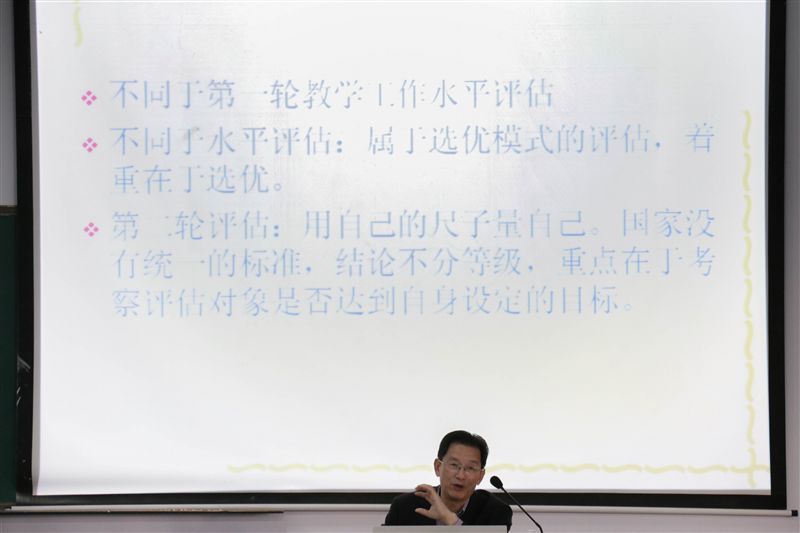 不同于第一轮教学工作水平评估
不同于水平评估：属于选优模式的评估，着
重在于选优。
第二轮评估：用自己的尺子量自己。国家没
有统一的标准，结论不分等级，重点在于考
察评估对象是否达到自身设定的目标。